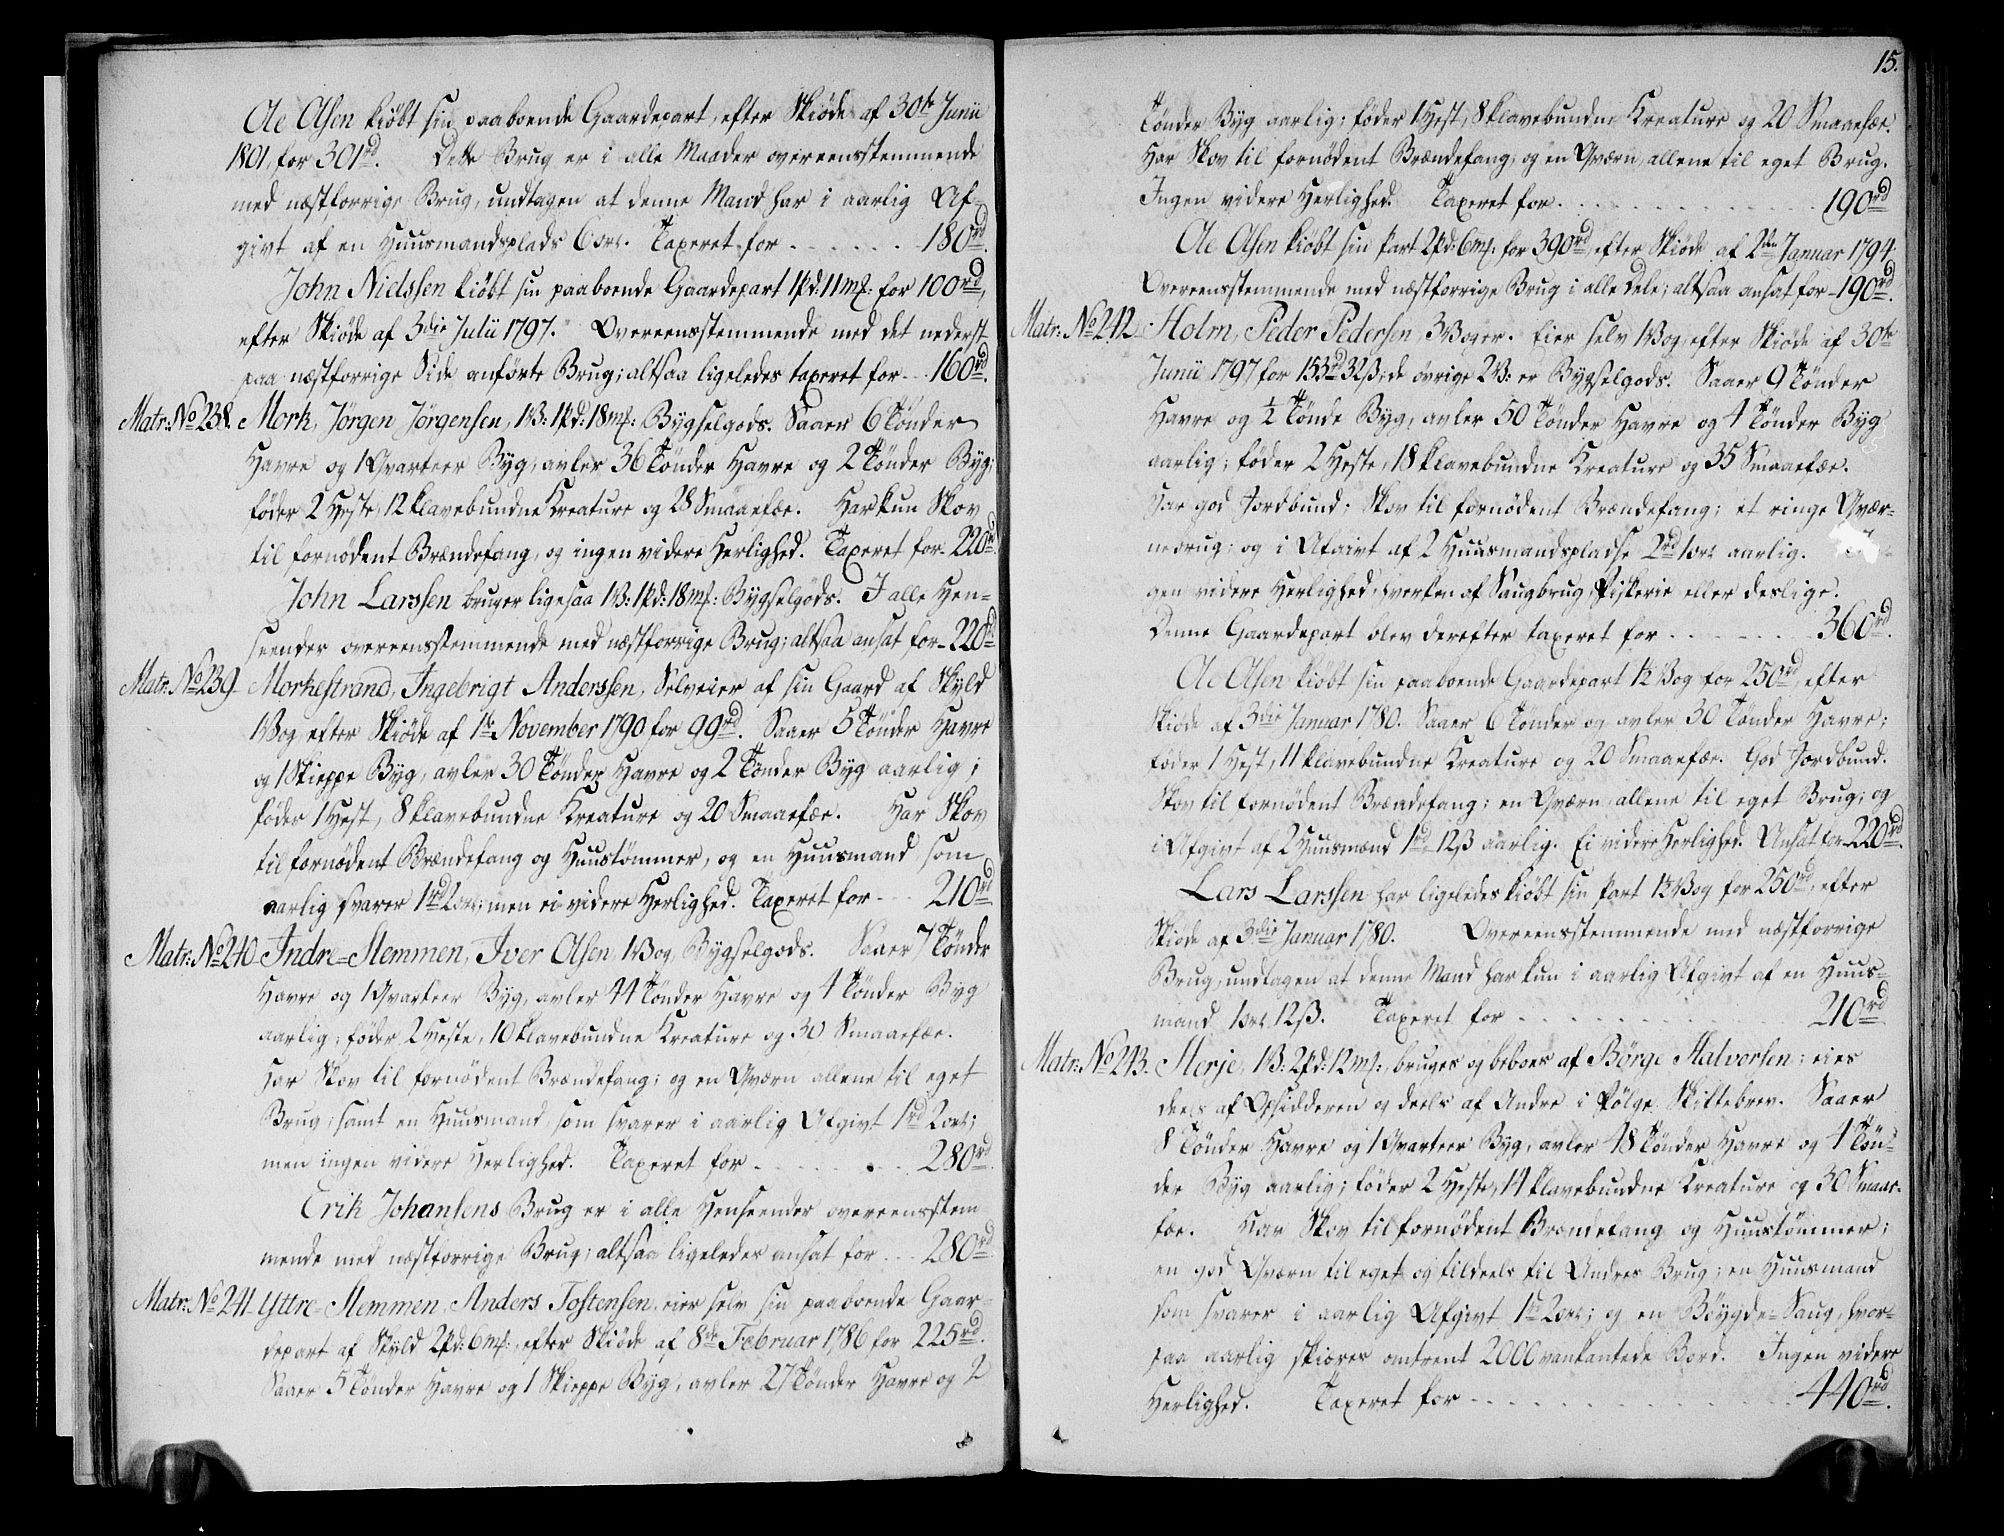 Ole Olsen kiøbt sin paaboende Gaardepart, efter Skiøde af 30te Junii
1801, for 301rd. Dette Brug er i alle Maader overeensstemmende
med næstforrige Brug, undtagen at denne Mand har i aarlig Af-
givt af en Huusmandsplads 6 ort. Taxeret for . . . . . . 180rd.
John Nielssen kiøbt sin paaboende Gaardepart 1pd: 11m#: for 100rd,
efter Skiøde af 3die Julii 1797. Overeensstemmende med det nederst
paa næstforrige Side anførte Brug; altsaa ligeledes taxeret for . . . 160rd.
Matr: No 238. Mork, Jörgen Jörgensen, 1V: 1pd: 18m#: Bygselgods. Saaer 6 Tønder
Havre og 1 Qvarteer Byg, avler 36 Tønder Havre og 2 Tønder Byg;
føder 2 Heste, 12 klavebundne Kreature og 28 Smaaefæe. Har kun Skov
til fornødent Brændefang, og ingen videre Herlighed. Taxeret for . 220rd.
John Larssen bruger ligesaa 1V: 1pd: 18m#: Bygselgods. I alle Hen-
seender overeensstemmende med næstforrige Brug; altsaa ansat for . 220rd
Matr: No 239. Morkestrand, Ingebrigt Anderssen, Selveier af sin Gaard af Skyld
1 Vog efter Skiøde af 1te November 1790 for 99rd. Saaer 5 Tønder Havre
og 1 Skieppe Byg, avler 30 Tønder Havre og 2 Tønder Byg aarlig;
føder 1 Hest, 8 klavebundne Kreature og 20 Smaaefæe. Har Skov
til fornødent Brændefang og Huustømmer, og en Huusmand som
aarlig svarer 1rd 2 ort; men ei videre Herlighed. Taxeret for . . . 210rd
Matr: No 240. Indre=Hemmen, Iver Olsen, 1 Vog, Bygselgods. Saaer 7 Tønder
Havre og 1 Qvarteer Byg, avler 44 Tønder Havre og 4 Tønder Byg
aarlig; føder 2 Heste, 10 klavebundne Kreature og 30 Smaaefæe.
Har Skov til fornødent Brændefang; og en Qværn allene til eget
Brug; samt en Huusmand, som svarer i aarlig Afgivt 1rd 2 ort;
men ingen videre Herlighed. Taxeret for . . . . . . . 280rd.
Erik Johansens Brug er i alle Henseender overeensstem
mende med næstforrige Brug; altsaa ligeledes ansat for . . . 280rd
Matr: No 241. Yttre=Hemmen, Anders Tostensen, eier selv sin paaboende Gaar-
depart af Skyld 2pd: 6m#:, efter Skiøde af 8de Februar 1786 for 225rd.
Saaer 5 Tønder Havre og 1 Skieppe Byg, avler 27 Tønder Havre og 2
15.
Tønder Byg aarlig; føder 1 Hest, 8 klavebundne Kreature og 20 Smaaefæe.
Har Skov til fornødent Brændefang, og en Qværn, allene til eget Brug.
Ingen videre Herlighed. Taxeret for . . . . . . . . . . . 190rd
Ole Olsen kiøbt sin Part 2pd: 6m#: for 390rd, efter Skiøde af 2den Januar 1794.
Overeensstemmende med næstforrige Brug i alle Dele; altsaa ansat for . 190rd.
Matr: No 242. Holm, Peder Pedersen, 3 Voger. Eier selv 1 Vog, efter Skiøde af 30te
Junii 1797 for 153rd 32ß; de øvrige 2 V: er Bygselgods. Saaer 9 Tønder
Havre og 1/2 Tønde Byg, avler 50 Tønder Havre og 4 Tønder Byg
aarlig; føder 2 Heste, 18 klavebundne Kreature og 35 Smaaefæe.
Har god Jordbund; Skov til fornødent Brændefang; et ringe Qvær-
nebrug; og i Afgivt af 2 Huusmandspladse 2rd 1 ort aarlig.
gen videre Herlighed, hverken af Saugbrug, Fiskerie eller deslige.
Denne Gaardepart blev derefter taxeret for . . . . . . . . 360rd.
Ole Olsen kiøbt sin paaboende Gaardepart 1½ Vog for 250rd, efter
Skiøde af 3die Januar 1780. Saaer 6 Tønder og avler 30 Tønder Havre;
føder 1 Hest, 11 klavebundne Kreature og 20 Smaaefæe. God Jordbund.
Skov til fornødent Brændefang; en Qværn allene til eget Brug; og
i Afgivt af 2 Huusmænd 1rd 12ß aarlig. Ei videre Herlighed. Ansat for . 220rd.
Lars Larssen har ligeledes kiøbt sin Part 1½ Vog for 250rd, efter
Skiøde af 3die Januar 1780. Overeensstemmende med næstforrige
Brug, undtagen at denne Mand har kun i aarlig Afgivt af en Huus-
mand 1 ort 12ß. Taxeret for . . . . . . . . . . . 210rd
Matr: No 243. Herje, 1V: 2pd: 12m#:, bruges og beboes af Börge Halvorsen; eies
deels af Opsidderen og deels af Andre i Følge Skiftebrev. Saaer
8 Tønder Havre og 1 Qvarteer Byg, avler 48 Tønder Havre og 4 Tøn-
der Byg aarlig; føder 2 Heste, 14 klavebundne Kreature og 30 Smaae-
fæe. Har Skov til fornødent Brændefang og Huustømmer;
en god Qværn til eget og tildeels til Andres Brug; en Huusmand
som svarer i aarlig Afgivt 1rd 2 ort; og en Bøygde=Saug, hvor-
paa aarlig skiæres omtrent 2000 vankantede Bord. Ingen videre
Herlighed. Taxeret for . . . . . . . . . . . . . 440rd.